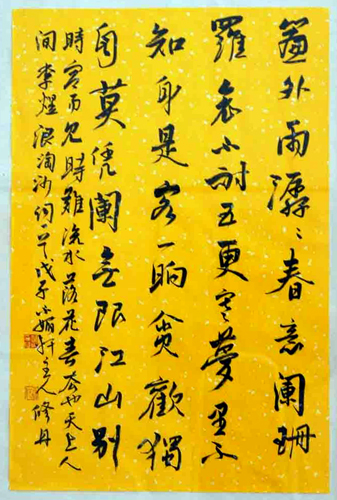 簾外雨潺〻春意闌珊
羅衾不耐五更寒夢里不
知身是客一晌貪歡獨
自莫凭闌無限江山別
時容易見時難流水落花春去也天上人
间李煜浪淘沙词一首戊子小媚軒主人修丹